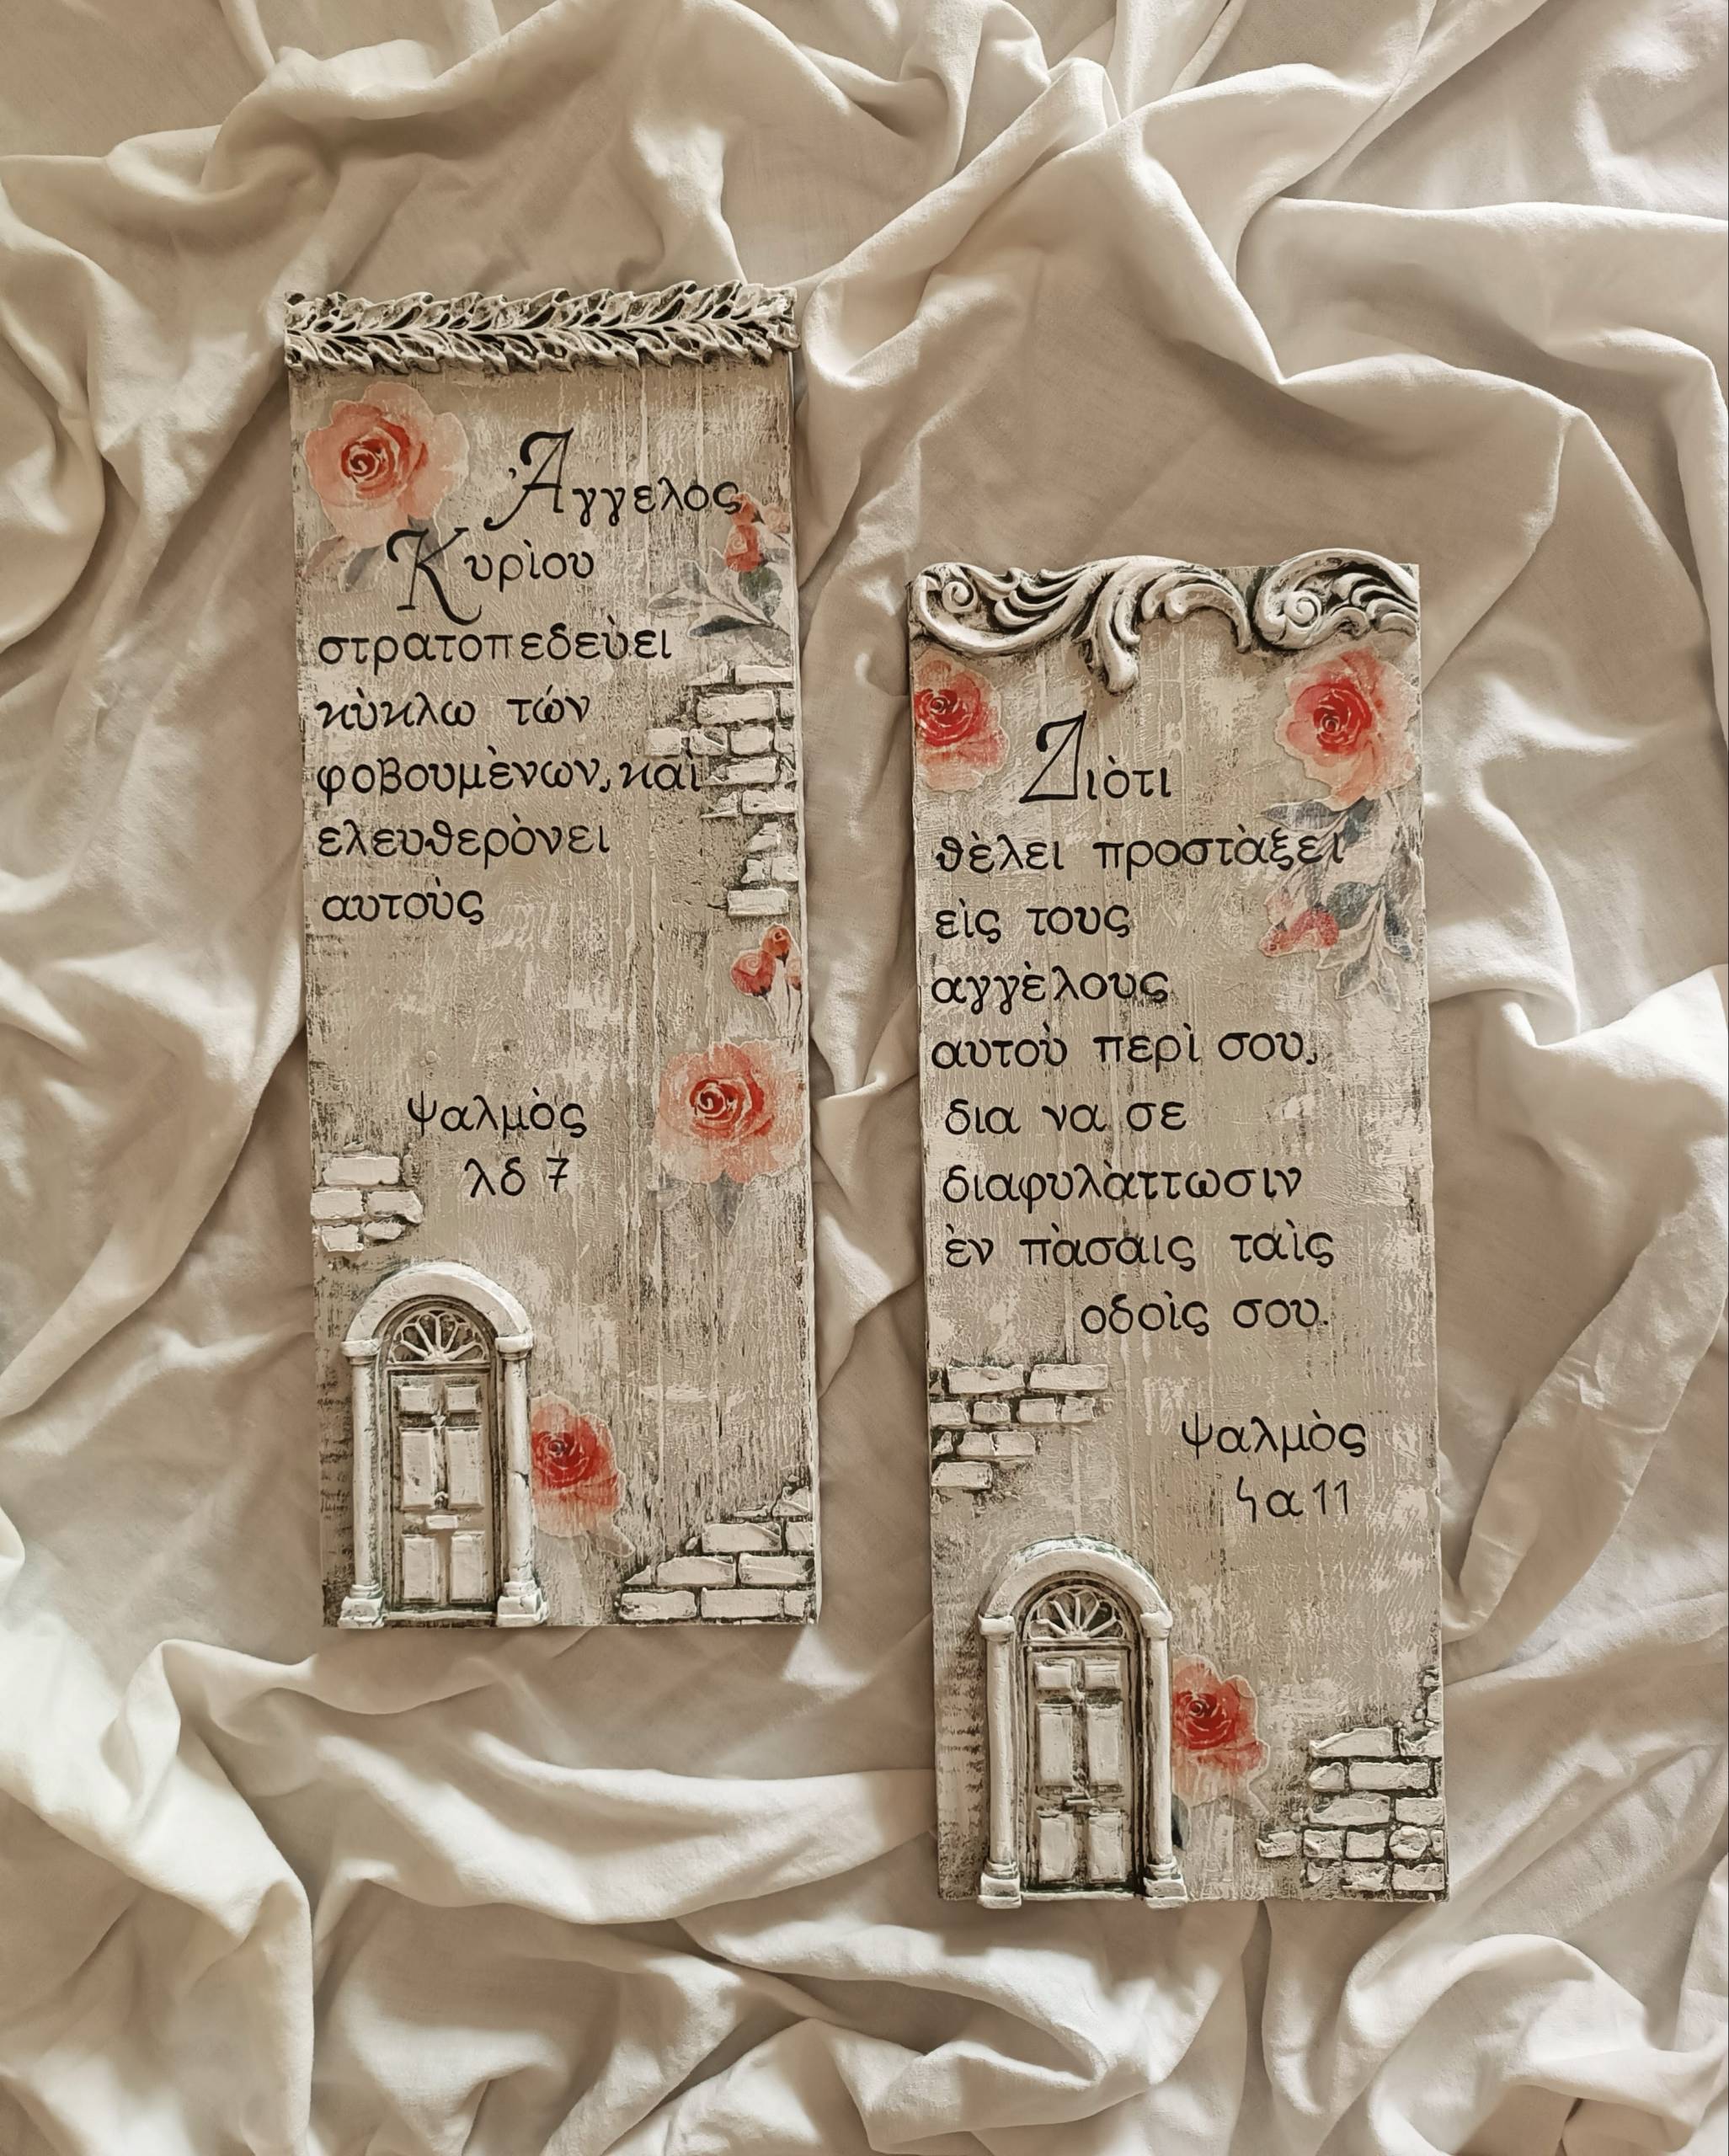 Ἄγγελος
Κυρὶου
στρατοπεδεὺει
κὺκλω τών
φοβουμὲνων, καὶ
ελευθερὸνει
αυτοὺς
Ψαλμὸς
λδ 7
Διὸτι
θὲλει προστὰξει
εὶς τους
αγγὲλους
αυτοὺ περὶ σου,
δια να σε
διαφυλὰττωσιν
ὲν πὰσαις ταὶς
οδοὶς σου.
Ψαλμὸς
ϟα 11